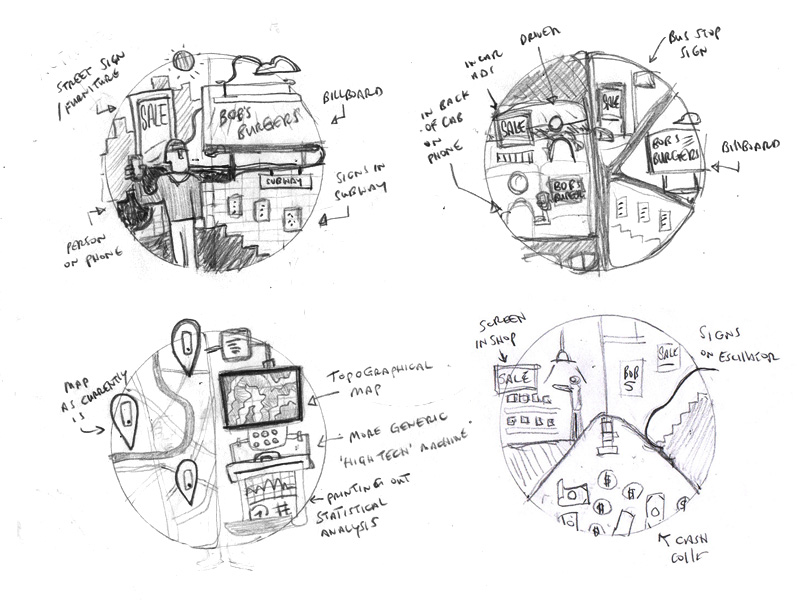 STREET SIGN
/FURNITURE
SALE
BOB'S
BURGERS
BILLBOARD
SUBWAY
SIGNS IN
SUBWAY
PERSON
ON PHONE
IN CAR
ADS
DRIVER
BUS STOP
SIGN
IN BACK
OF CAB
ON
PHONE
SALE
SALE
BOB'S
BURGERS
BILLBOARD
BOB'S
MAP
AS CURRENTLY
IS
TOPOGRAPHICAL
MAP
MORE GENERIC
'HIGH TECH' MACHINE'
PRINTING OUT
STATISTICAL
ANALYSIS
#
SCREEN
IN SHOP
SALE
SALE
BOB
S
SIGNS
ON ESCILATOR
$
$
$
$
$
CASH